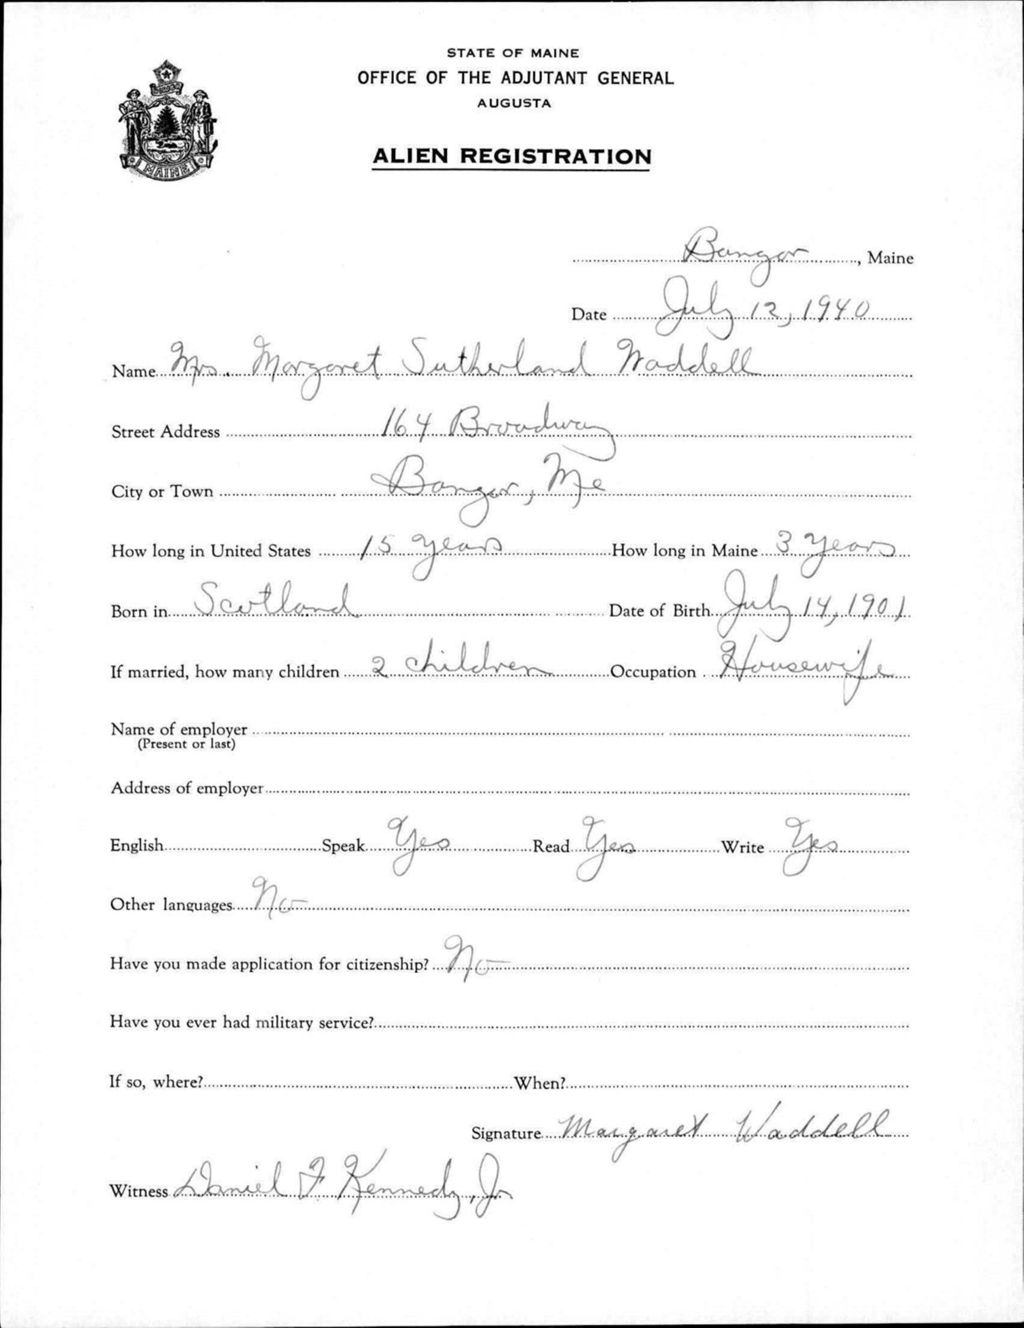 STATE OF MAINE
OFFICE OF THE ADJUTANT GENERAL
AUGUSTA
ALIEN REGISTRATION
MAINE
Bangor, Maine
Date July 12, 1940
Name Mrs. Margaret Sutherland Waddell
Street Address 164 Broadway
City or Town Bangor, Me
How long in United States 15 years How long in Maine 3 years
Born in Scotland Date of Birth July 14, 1901
If married, how many children 2 children Occupation Housewife
Name of employer
(Present or last)
Address of employer
English Speak Yes Read Yes Write Yes
Other languages No
Have you made application for citizenship? No
Have you ever had military service?
If so, where? When?
Signature Margaret Waddell
Witness Daniel F Kennedy, Jr